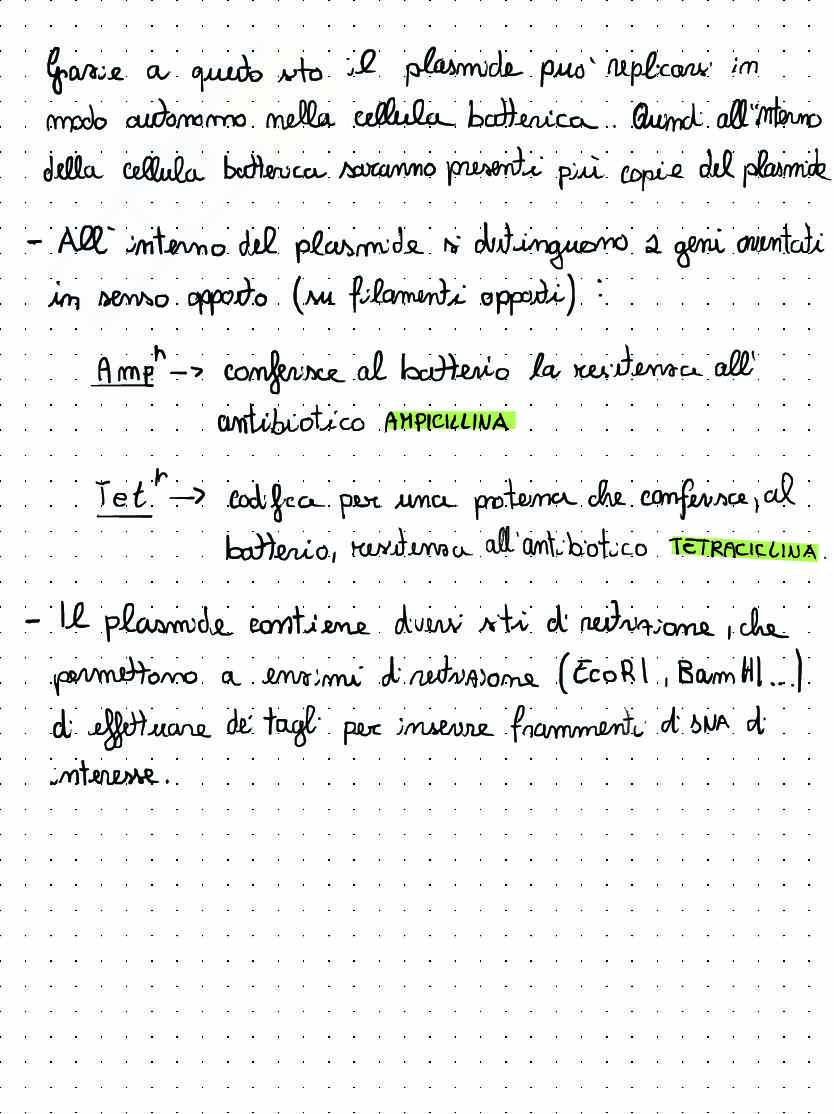 Grazie a questo sito il plasmide può replicarsi in
modo autonomo nella cellula batterica. Quindi all'interno
della cellula batterica saranno presenti più copie del plasmide
- All'interno del plasmide si distinguono 2 geni orientati
in senso opposto (su filamenti opposti) :
Amp^r -> conferisce al batterio la resistenza all'
antibiotico AMPICILLINA
Tet^r -> codifica per una proteina che conferisce, al
batterio, resistenza all'antibiotico TETRACICLINA.
- Il plasmide contiene diversi siti di restrizione, che
permettono a enzimi di restrizione (EcoRI, BamHI...)
di effettuare dei tagli per inserire frammenti di DNA di
interesse.